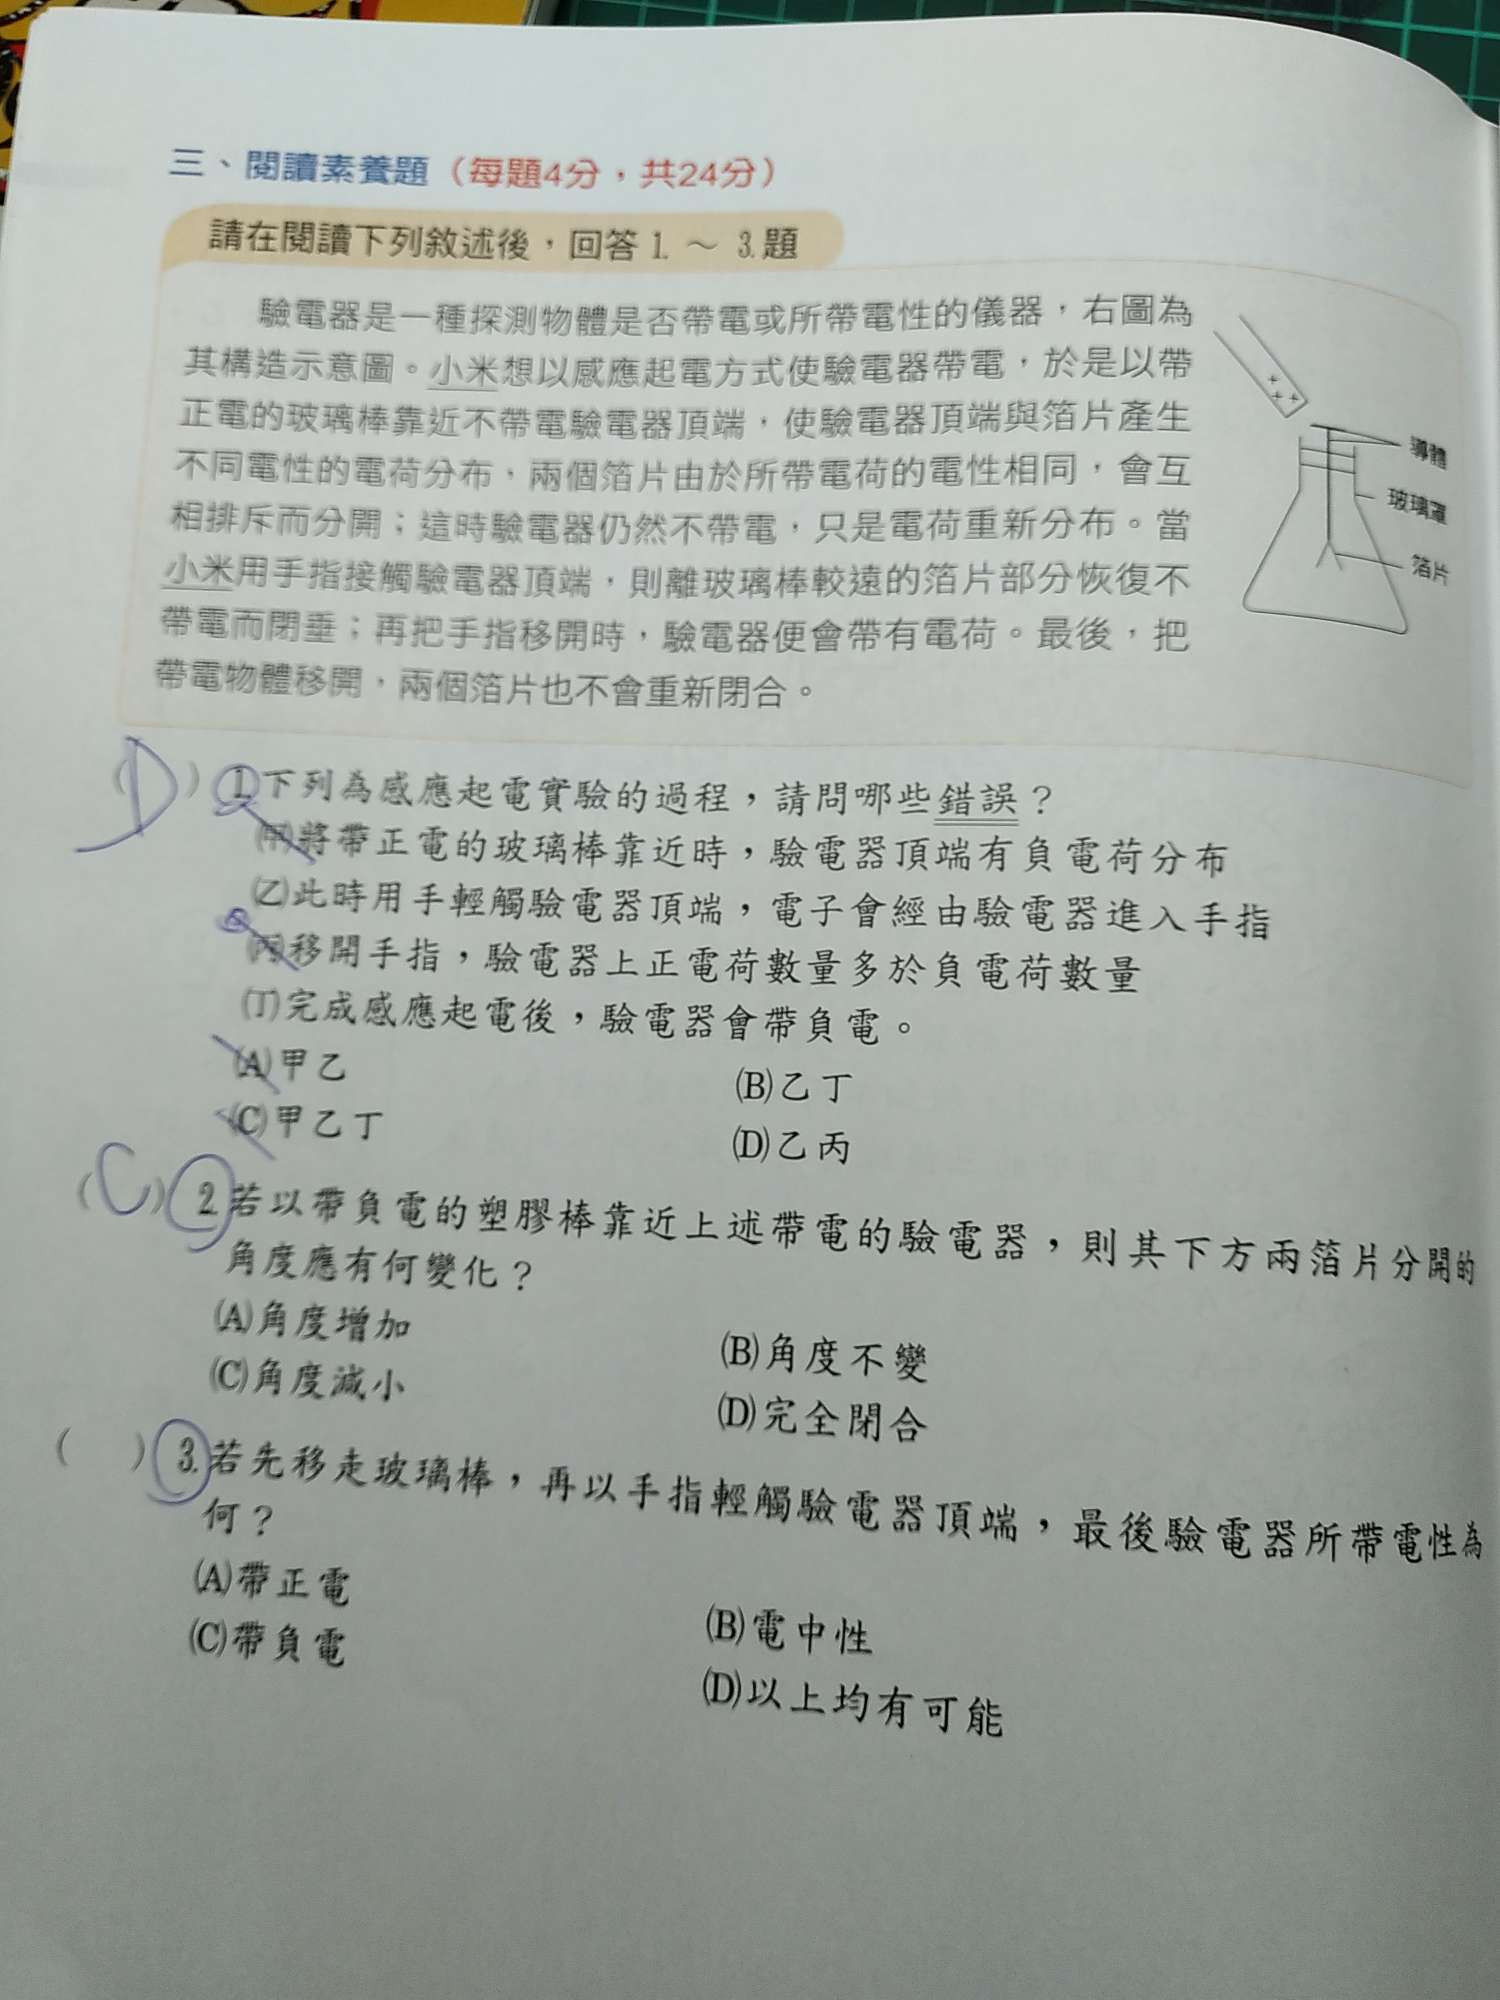 三、閱讀素養題（每題4分，共24分）
請在閱讀下列敘述後，回答 1. ～ 3. 題
驗電器是一種探測物體是否帶電或所帶電性的儀器，右圖為
其構造示意圖。小米想以感應起電方式使驗電器帶電，於是以帶
正電的玻璃棒靠近不帶電驗電器頂端，使驗電器頂端與箔片產生
不同電性的電荷分布，兩個箔片由於所帶電荷的電性相同，會互
相排斥而分開；這時驗電器仍然不帶電，只是電荷重新分布。當
小米用手指接觸驗電器頂端，則離玻璃棒較遠的箔片部分恢復不
帶電而閉垂；再把手指移開時，驗電器便會帶有電荷。最後，把
帶電物體移開，兩個箔片也不會重新閉合。
+
+ +
導體
玻璃罩
箔片
(D) 1.下列為感應起電實驗的過程，請問哪些錯誤？
(甲)將帶正電的玻璃棒靠近時，驗電器頂端有負電荷分布
(乙)此時用手輕觸驗電器頂端，電子會經由驗電器進入手指
(丙)移開手指，驗電器上正電荷數量多於負電荷數量
(丁)完成感應起電後，驗電器會帶負電。
(A)甲乙
(B)乙丁
(C)甲乙丁
(D)乙丙
(C) 2.若以帶負電的塑膠棒靠近上述帶電的驗電器，則其下方兩箔片分開的
角度應有何變化？
(A)角度增加
(B)角度不變
(C)角度減小
(D)完全閉合
( ) 3.若先移走玻璃棒，再以手指輕觸驗電器頂端，最後驗電器所帶電性為
何？
(A)帶正電
(B)電中性
(C)帶負電
(D)以上均有可能